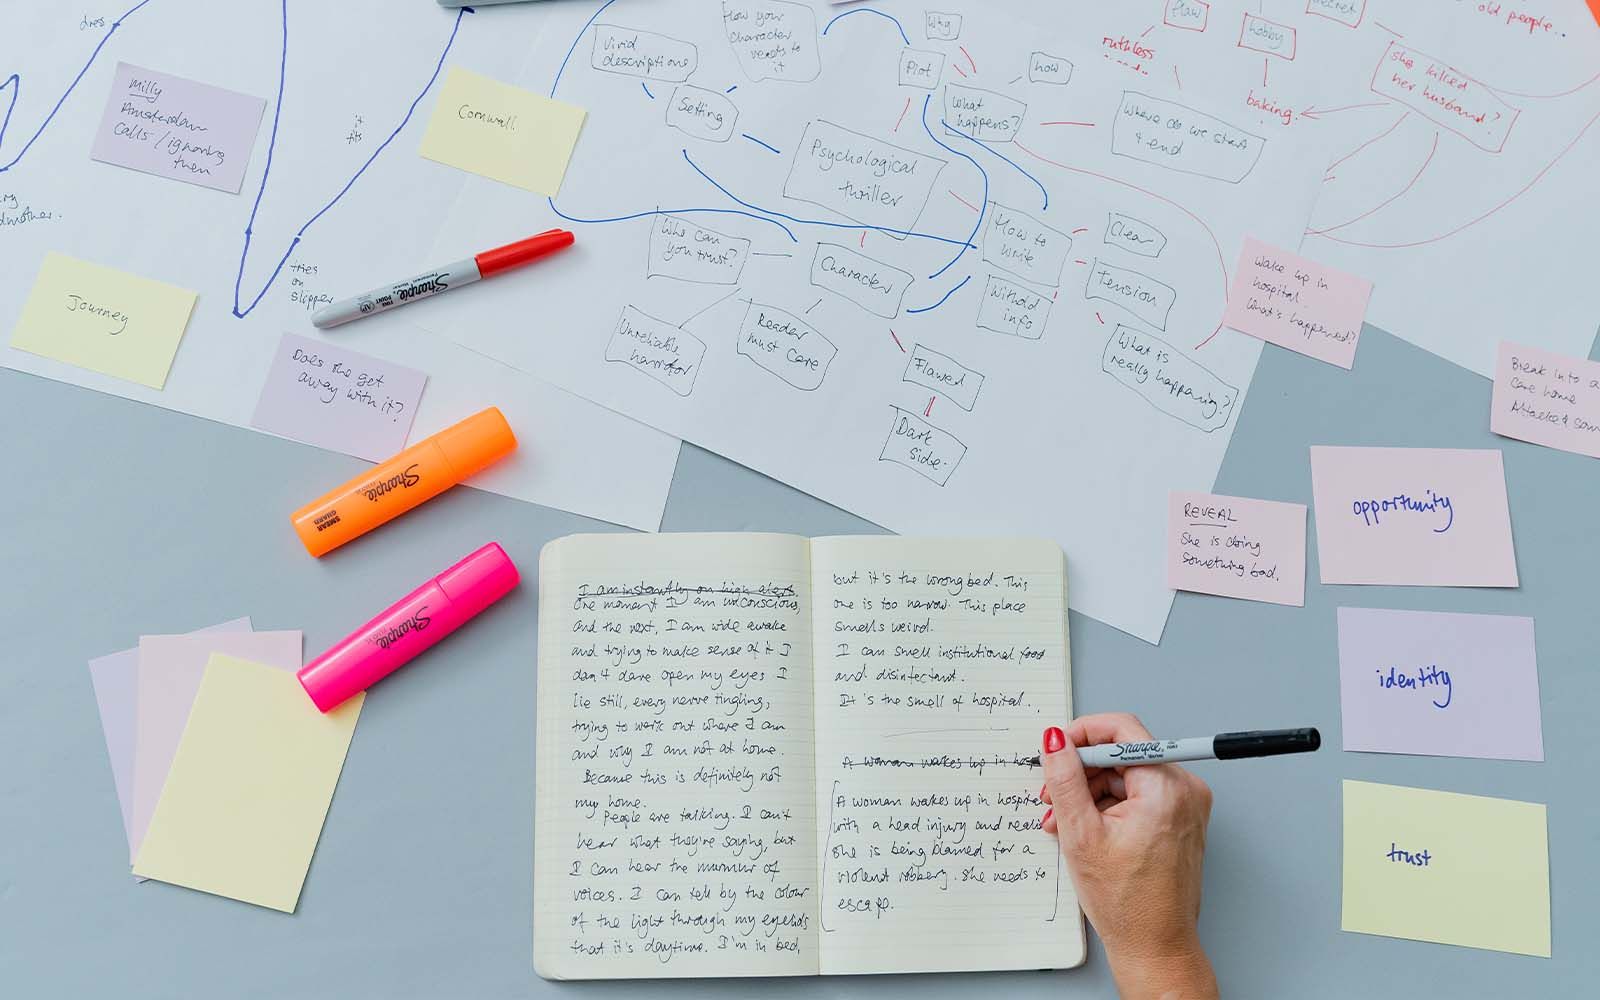 dres
Milly
Amsterdam
calls / ignoring
them
Cornwall.
it
fits
tries
on
slipper
Journey
Does she get
away with it?
Vivid
descriptions
How your
character
reacts to
it
Setting
Why
Plot
how
What
happens?
Where do we start
& end
Psychological
thriller
Who can
you trust?
Character
Unreliable
narrator
Reader
must care
How to
write
Withold
info
Clear
Tension
What is
really happening?
Flawed
Dark
side.
flaw
ruthless
hobby
baking.
secret
old people..
she killed
her husband?
Wake up in
hospital.
What's happened?
Break into a
care home
REVEAL
She is doing
something bad.
opportunity
identity
trust
Sharpie
FINE POINT
Permanent Marker
Sharpie
SMEAR
GUARD
Sharpie
Sharpie
Permanent Marker
I am instantly on high alert.
One moment I am unconscious,
and the next, I am wide awake
and trying to make sense of it I
don't dare open my eyes I
lie still, every nerve tingling,
trying to work out where I am
and why I am not at home.
Because this is definitely not
my home.
People are talking. I can't
hear what they're saying, but
I can hear the murmur of
voices. I can tell by the colour
of the light through my eyelids
that it's daytime. I'm in bed,
but it's the wrong bed. This
one is too narrow. This place
smells weird.
I can smell institutional food
and disinfectant.
It's the smell of hospital..
A woman wakes up in hospi
A woman wakes up in hospital
with a head injury and realis
she is being blamed for a
violent robbery. She needs to
escape.